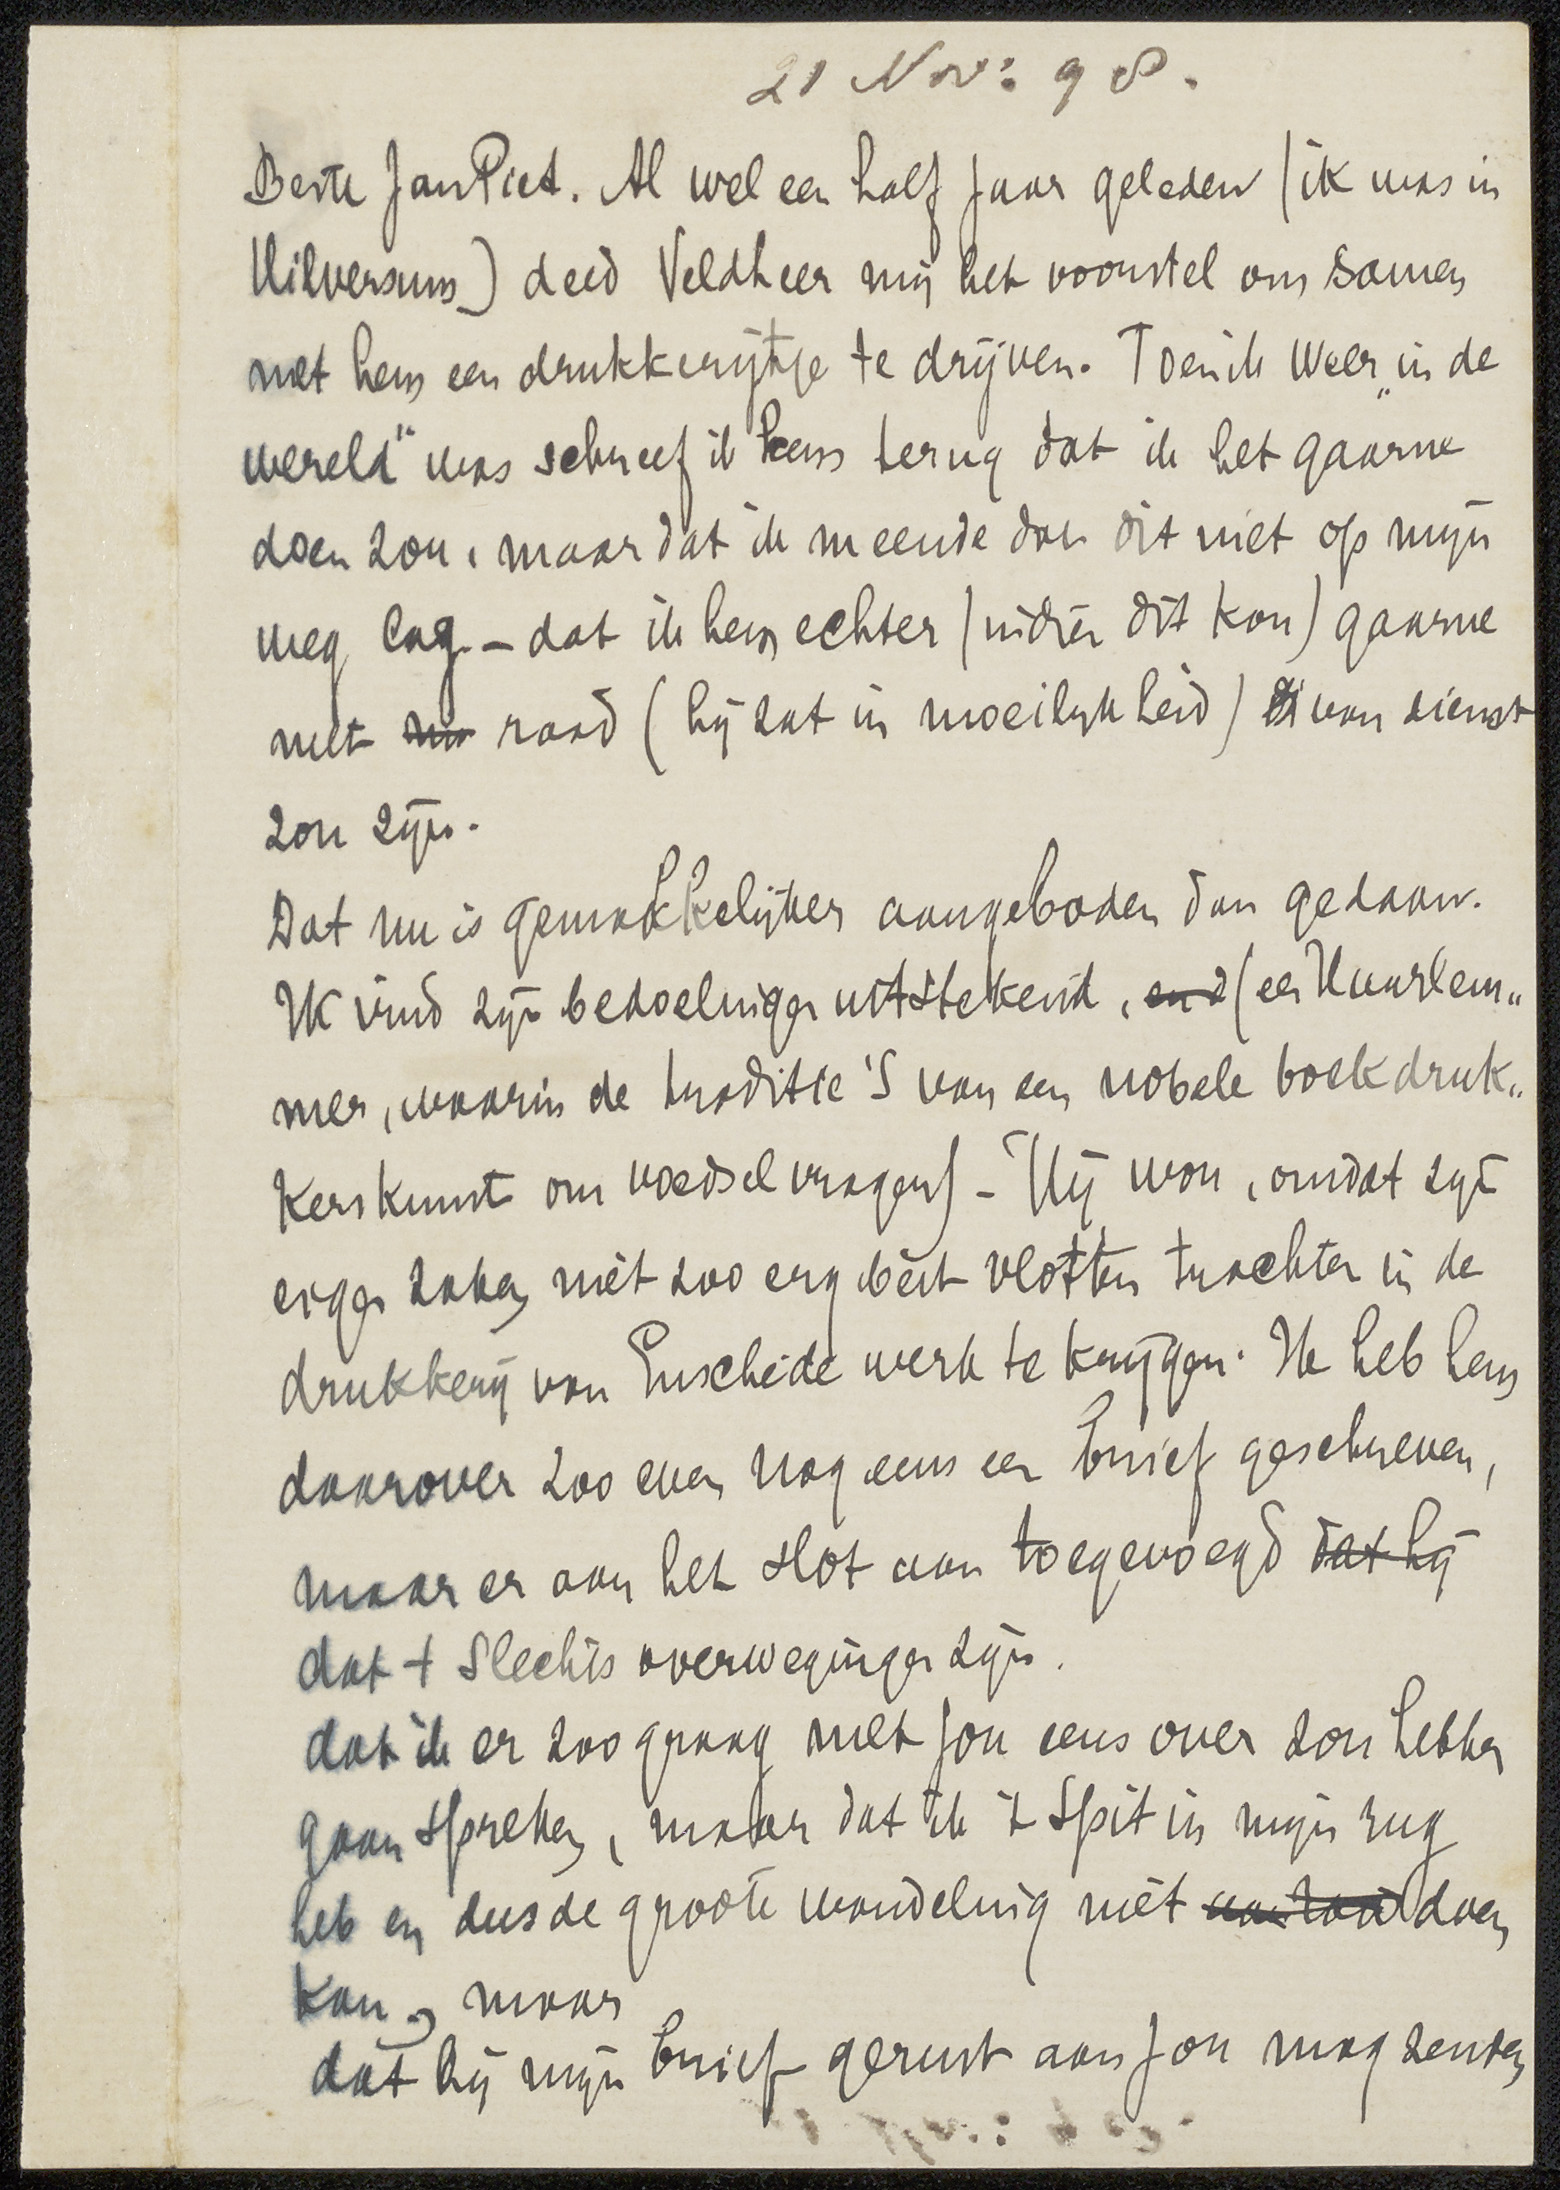 21 Nov: 98.
Beste Jan Piet. Al wel een half jaar geleden (ik was in
Hilversum) deed Veldheer mij het voorstel om samen
met hem een drukkerijtje te drijven. Toen ik weer „in de
wereld" was schreef ik hem terug dat ik het gaarne
doen zou, maar dat ik meende dat dit niet op mijn
weg lag. – dat ik hem echter (indien dit kon) gaarne
met raad (hij zat in moeilijkheid) van dienst
zou zijn.
Dat nu is gemakkelijker aangeboden dan gedaan.
Ik vind zijn bedoelingen uitstekend, en (een Haarlem„
mer, waarin de traditie's van een nobele boekdruk„
kerskunst om voedsel vragen) – Hij wou, omdat zijn
eigen zaken niet zoo erg best vlotten trachten in de
drukkerij van Enschedé werk te krijgen. Ik heb hem
daarover zoo even nog eens een brief geschreven,
maar er aan het slot aan toegevoegd dat hij
dat + slechts overwegingen zijn.
dat ik er zoo graag met jou eens over zou hebben
gaan spreken, maar dat ik 't spit in mijn rug
heb en dus de groote wandeling niet doen
kan, maar
dat hij mijn brief gerust aan jou mag zenden